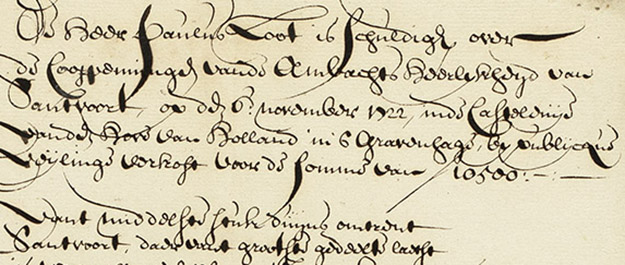 De Heer Paulus Loot is schuldigh over
de Cooppenningen vande Ambachts Heerlykheyd van
Santvoort, op den 6: november 1722, inde Casteleinye
vanden Hove van Holland in s Gravenhage, by publicque
veijlinge verkoft voor de somme van 10500:-:-
vant middelste stuk duijns omtrent
Santvoort, daer vant grootste gedeelte laest